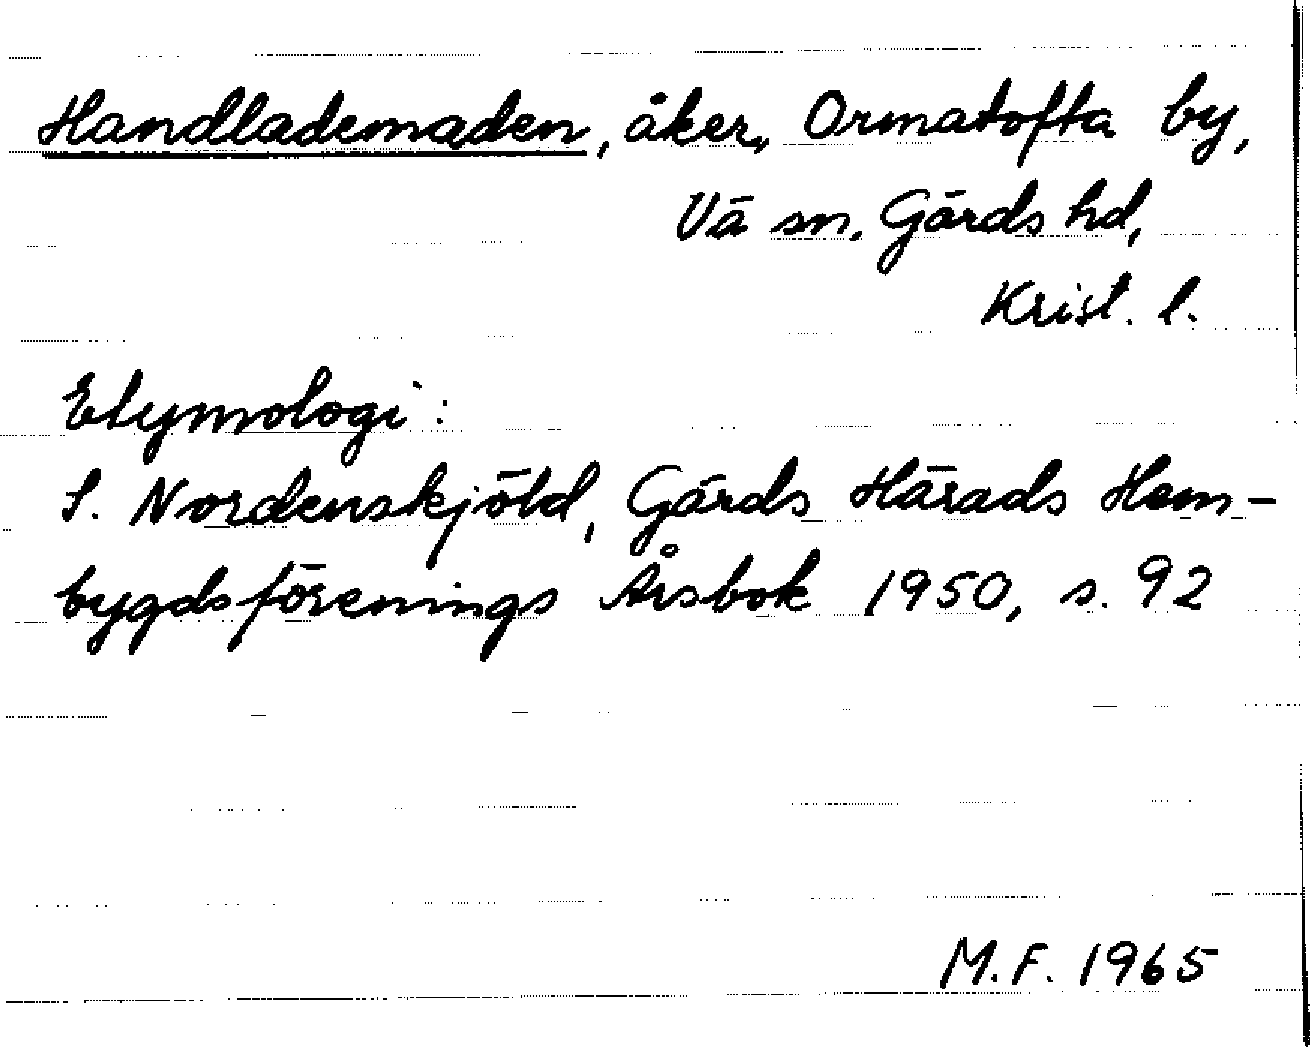 Handlademaden, åker, Ormatofta by,
Vä sn, Gärds hd,
Krist. l.
Etymologi:
S. Nordenskjöld, Gärds Härads Hem-
bygdsförenings Årsbok 1950, s. 92
M.F. 1965